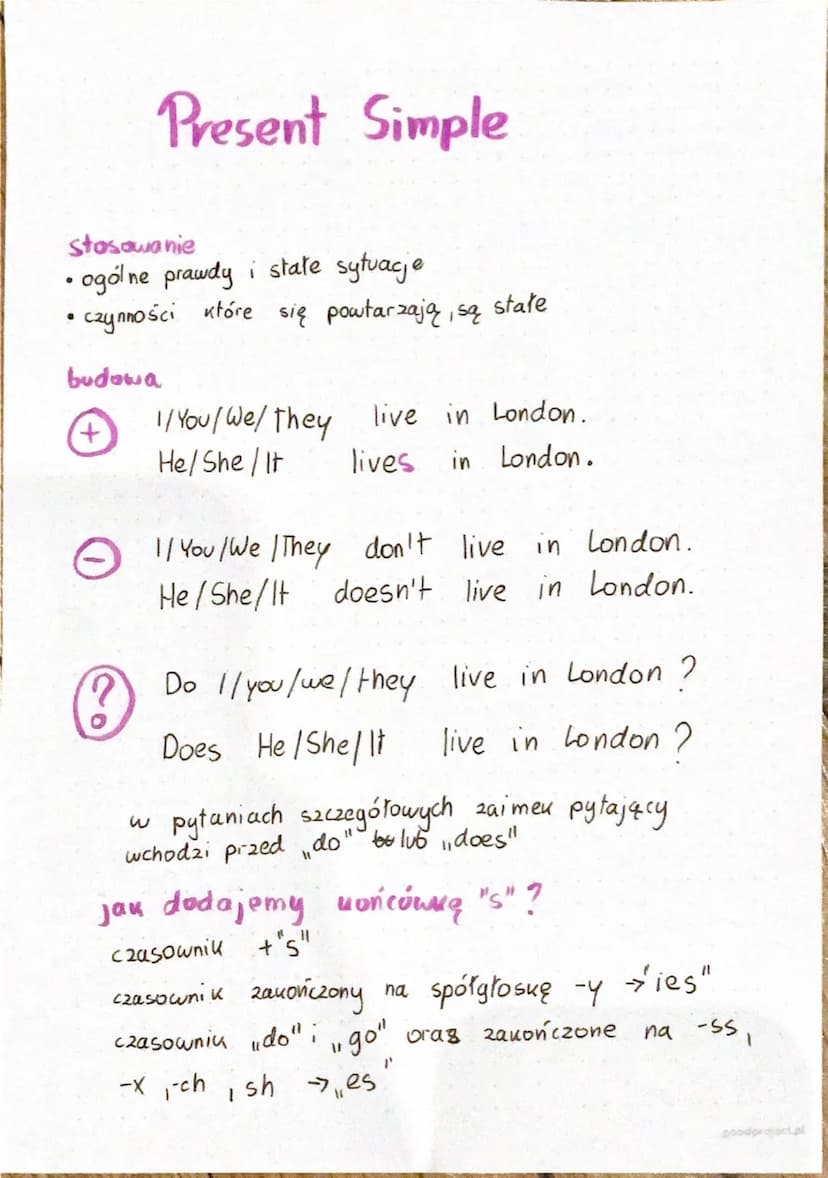 Present Simple
stosowanie
• ogólne prawdy i stałe sytuacje
• czynności które się powtarzają, są stałe
budowa
+ I/You/We/They live in London.
He/She/It lives in London.
- I/You/We/They don't live in London.
He/She/It doesn't live in London.
? Do I/you/we/they live in London?
Does He/She/It live in London?
w pytaniach szczegółowych zaimek pytający
wchodzi przed „do" lub „does"
jak dodajemy końcówkę "s"?
czasownik +"s"
czasownik zakończony na spółgłoskę -y → "ies"
czasowniki „do" i „go" oraz zakończone na -ss,
-x, -ch, sh → „es"
goodproject.pl